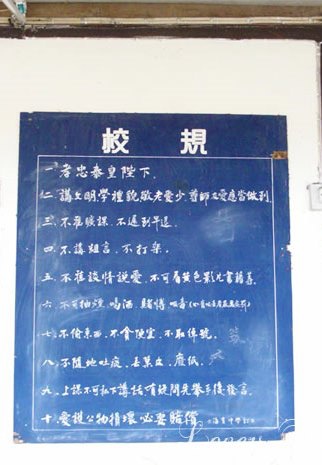 校規
一 孝忠泰皇陛下.
二. 講文明學禮貌敬老愛少尊師友愛應當做到.
三. 不準曠課. 不遲到早退.
四. 不講粗言. 不打架.
五. 不准談情說愛. 不可看黃色影片書籍等.
六. 不可抽煙. 喝酒 賭博 吸毒
七. 不偷東西. 不貪便宜. 不取綽號.
八. 不隨地吐痰. 丟菓皮. 廢紙.
九. 上課不可私下講話有疑問先舉手後發言.
十. 愛護公物損壞必要賠償